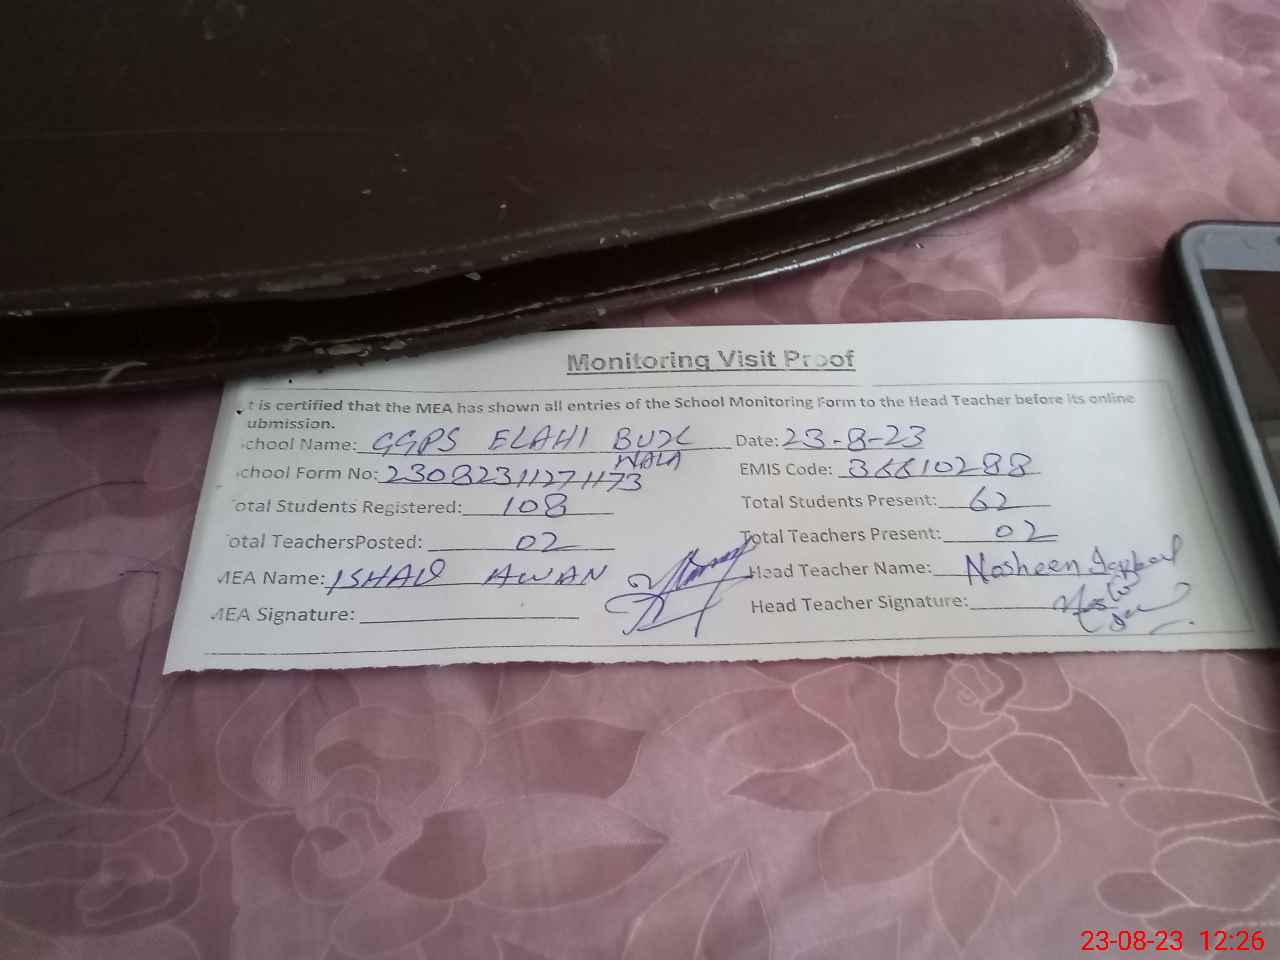 Monitoring Visit Proof
t is certified that the MEA has shown all entries of the School Monitoring Form to the Head Teacher before its online
ubmission.
chool Name: GGPS ELAHI BUX WALA Date: 23-8-23
chool Form No: 23082311271173 EMIS Code: 36610288
otal Students Registered: 108 Total Students Present: 62
otal TeachersPosted: 02 Total Teachers Present: 02
MEA Name: ISHAQ AWAN Head Teacher Name: Nosheen
MEA Signature: Head Teacher Signature:
23-08-23 12:26